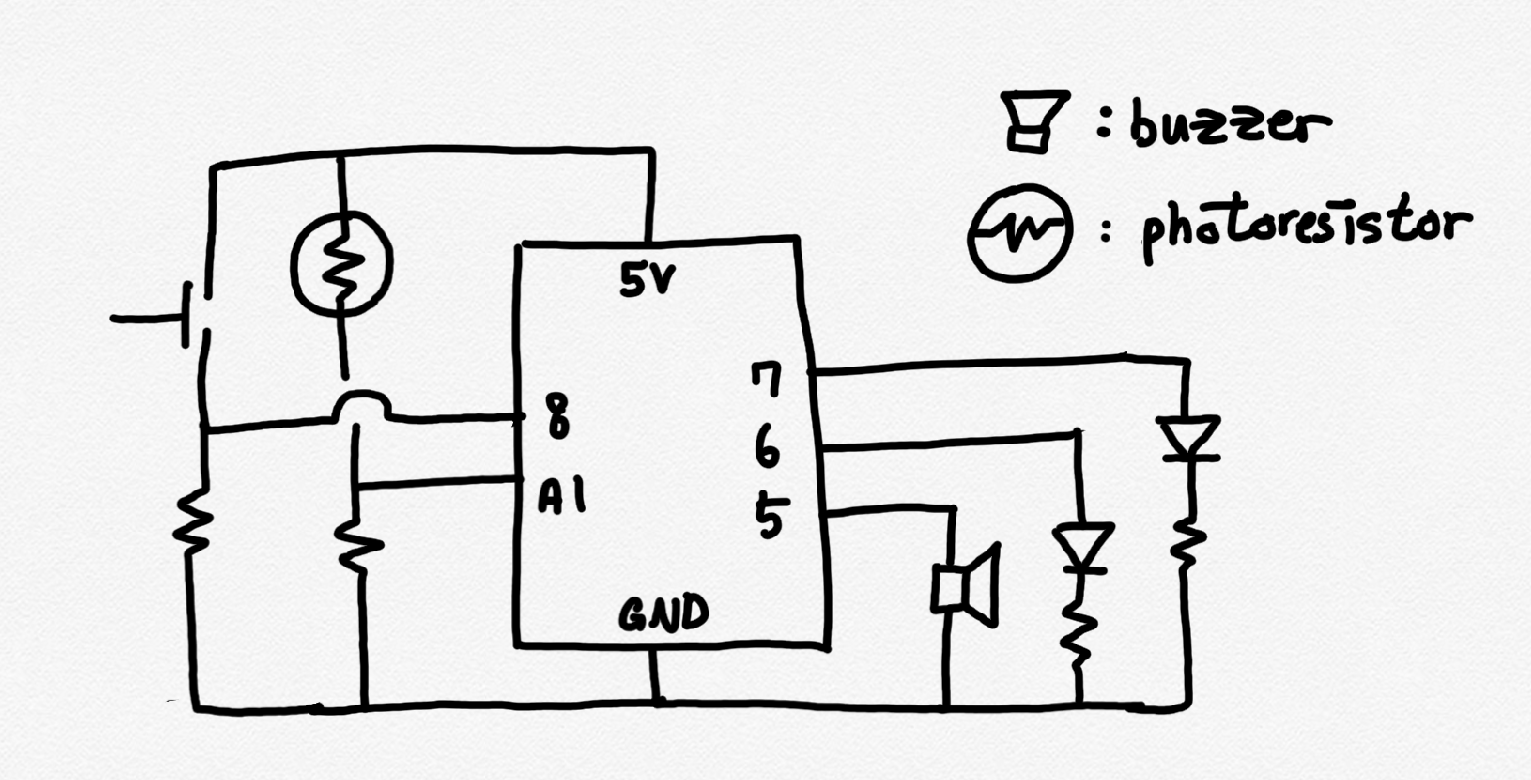 : buzzer
: photoresistor
5V
7
8
6
A1
5
GND